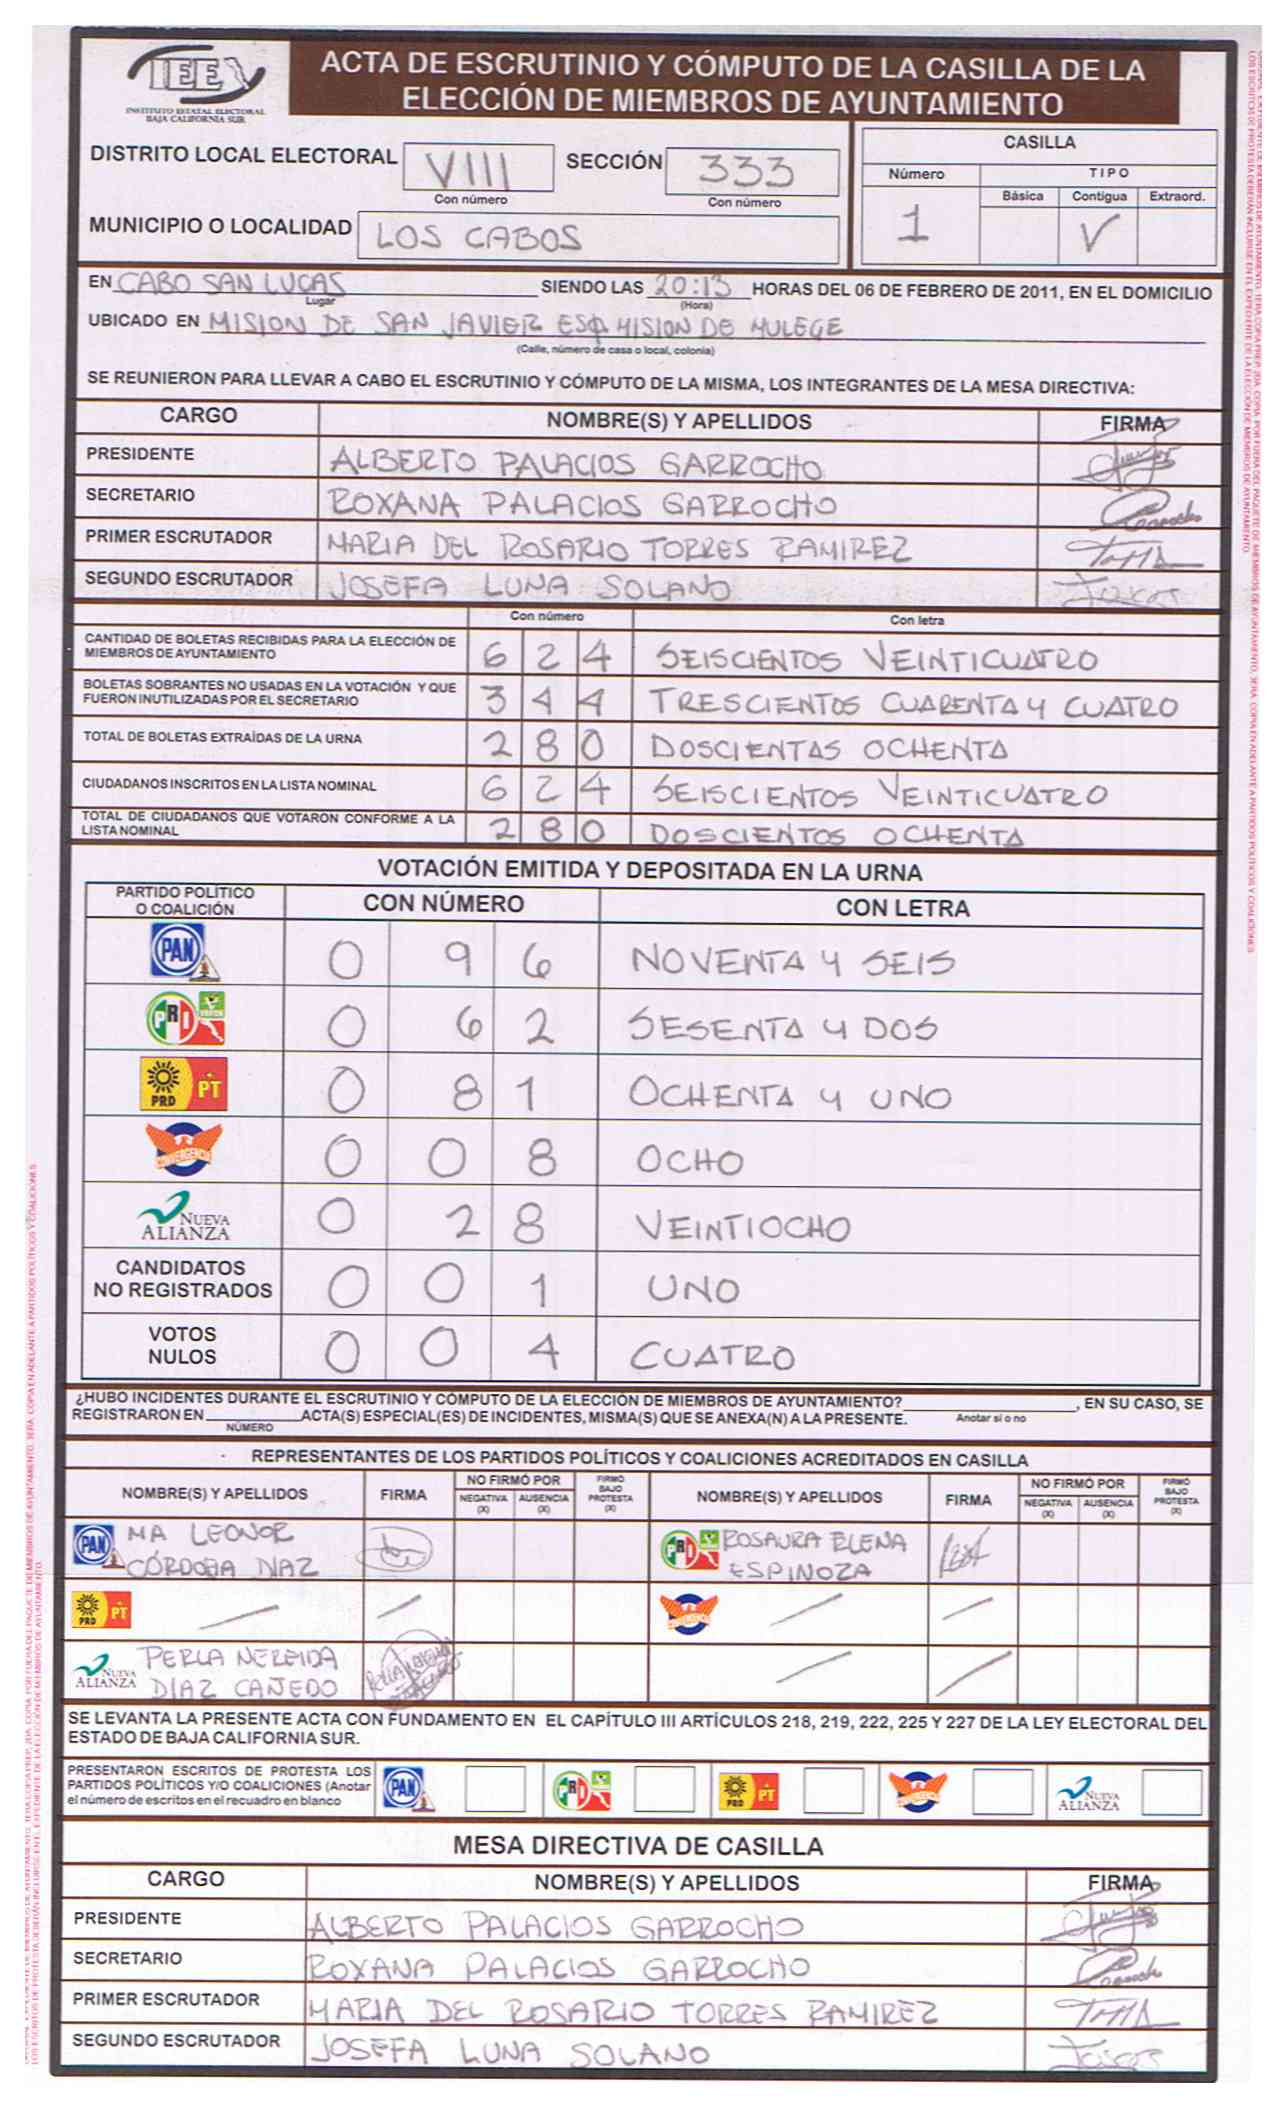 IEE
INSTITUTO ESTATAL ELECTORAL
BAJA CALIFORNIA SUR
ACTA DE ESCRUTINIO Y CÓMPUTO DE LA CASILLA DE LA
ELECCIÓN DE MIEMBROS DE AYUNTAMIENTO
DISTRITO LOCAL ELECTORAL VIII SECCIÓN 333
Con número Con número
MUNICIPIO O LOCALIDAD LOS CABOS
CASILLA
Número TIPO
Básica Contigua Extraord.
1 V
EN CABO SAN LUCAS SIENDO LAS 20:13 HORAS DEL 06 DE FEBRERO DE 2011, EN EL DOMICILIO
Lugar (Hora)
UBICADO EN MISION DE SAN JAVIER ESQ MISION DE MULEGE
(Calle, número de casa o local, colonia)
SE REUNIERON PARA LLEVAR A CABO EL ESCRUTINIO Y CÓMPUTO DE LA MISMA, LOS INTEGRANTES DE LA MESA DIRECTIVA:
CARGO NOMBRE(S) Y APELLIDOS FIRMA
PRESIDENTE ALBERTO PALACIOS GARROCHO
SECRETARIO ROXANA PALACIOS GARROCHO
PRIMER ESCRUTADOR MARIA DEL ROSARIO TORRES RAMIREZ
SEGUNDO ESCRUTADOR JOSEFA LUNA SOLANO
Con número Con letra
CANTIDAD DE BOLETAS RECIBIDAS PARA LA ELECCIÓN DE
MIEMBROS DE AYUNTAMIENTO 6 2 4 SEISCIENTOS VEINTICUATRO
BOLETAS SOBRANTES NO USADAS EN LA VOTACIÓN Y QUE
FUERON INUTILIZADAS POR EL SECRETARIO 3 4 4 TRESCIENTOS CUARENTA Y CUATRO
TOTAL DE BOLETAS EXTRAÍDAS DE LA URNA 2 8 0 DOSCIENTAS OCHENTA
CIUDADANOS INSCRITOS EN LA LISTA NOMINAL 6 2 4 SEISCIENTOS VEINTICUATRO
TOTAL DE CIUDADANOS QUE VOTARON CONFORME A LA
LISTA NOMINAL 2 8 0 DOSCIENTOS OCHENTA
VOTACIÓN EMITIDA Y DEPOSITADA EN LA URNA
PARTIDO POLÍTICO
O COALICIÓN CON NÚMERO CON LETRA
PAN 0 9 6 NOVENTA Y SEIS
PRI VERDE 0 6 2 SESENTA Y DOS
PRD PT 0 8 1 OCHENTA Y UNO
CONVERGENCIA 0 0 8 OCHO
NUEVA
ALIANZA 0 2 8 VEINTIOCHO
CANDIDATOS
NO REGISTRADOS 0 0 1 UNO
VOTOS
NULOS 0 0 4 CUATRO
¿HUBO INCIDENTES DURANTE EL ESCRUTINIO Y CÓMPUTO DE LA ELECCIÓN DE MIEMBROS DE AYUNTAMIENTO? , EN SU CASO, SE
REGISTRARON EN ACTA(S) ESPECIAL(ES) DE INCIDENTES, MISMA(S) QUE SE ANEXA(N) A LA PRESENTE. Anotar si o no
NÚMERO
REPRESENTANTES DE LOS PARTIDOS POLÍTICOS Y COALICIONES ACREDITADOS EN CASILLA
NOMBRE(S) Y APELLIDOS FIRMA NO FIRMÓ POR NEGATIVA (X) AUSENCIA (X) FIRMÓ BAJO PROTESTA (X) NOMBRE(S) Y APELLIDOS FIRMA NO FIRMÓ POR NEGATIVA (X) AUSENCIA (X) FIRMÓ BAJO PROTESTA (X)
PAN MA LEONOR PRI ROSAURA ELENA
CÓRDOBA DIAZ ESPINOZA
PRD PT CONVERGENCIA
NUEVA ALIANZA PERLA NEREIDA
DIAZ CAÑEDO
SE LEVANTA LA PRESENTE ACTA CON FUNDAMENTO EN EL CAPÍTULO III ARTÍCULOS 218, 219, 222, 225 Y 227 DE LA LEY ELECTORAL DEL
ESTADO DE BAJA CALIFORNIA SUR.
PRESENTARON ESCRITOS DE PROTESTA LOS
PARTIDOS POLÍTICOS Y/O COALICIONES (Anotar
el número de escritos en el recuadro en blanco
PAN PRI PRD PT CONVERGENCIA NUEVA ALIANZA
MESA DIRECTIVA DE CASILLA
CARGO NOMBRE(S) Y APELLIDOS FIRMA
PRESIDENTE ALBERTO PALACIOS GARROCHO
SECRETARIO ROXANA PALACIOS GARROCHO
PRIMER ESCRUTADOR MARIA DEL ROSARIO TORRES RAMIREZ
SEGUNDO ESCRUTADOR JOSEFA LUNA SOLANO